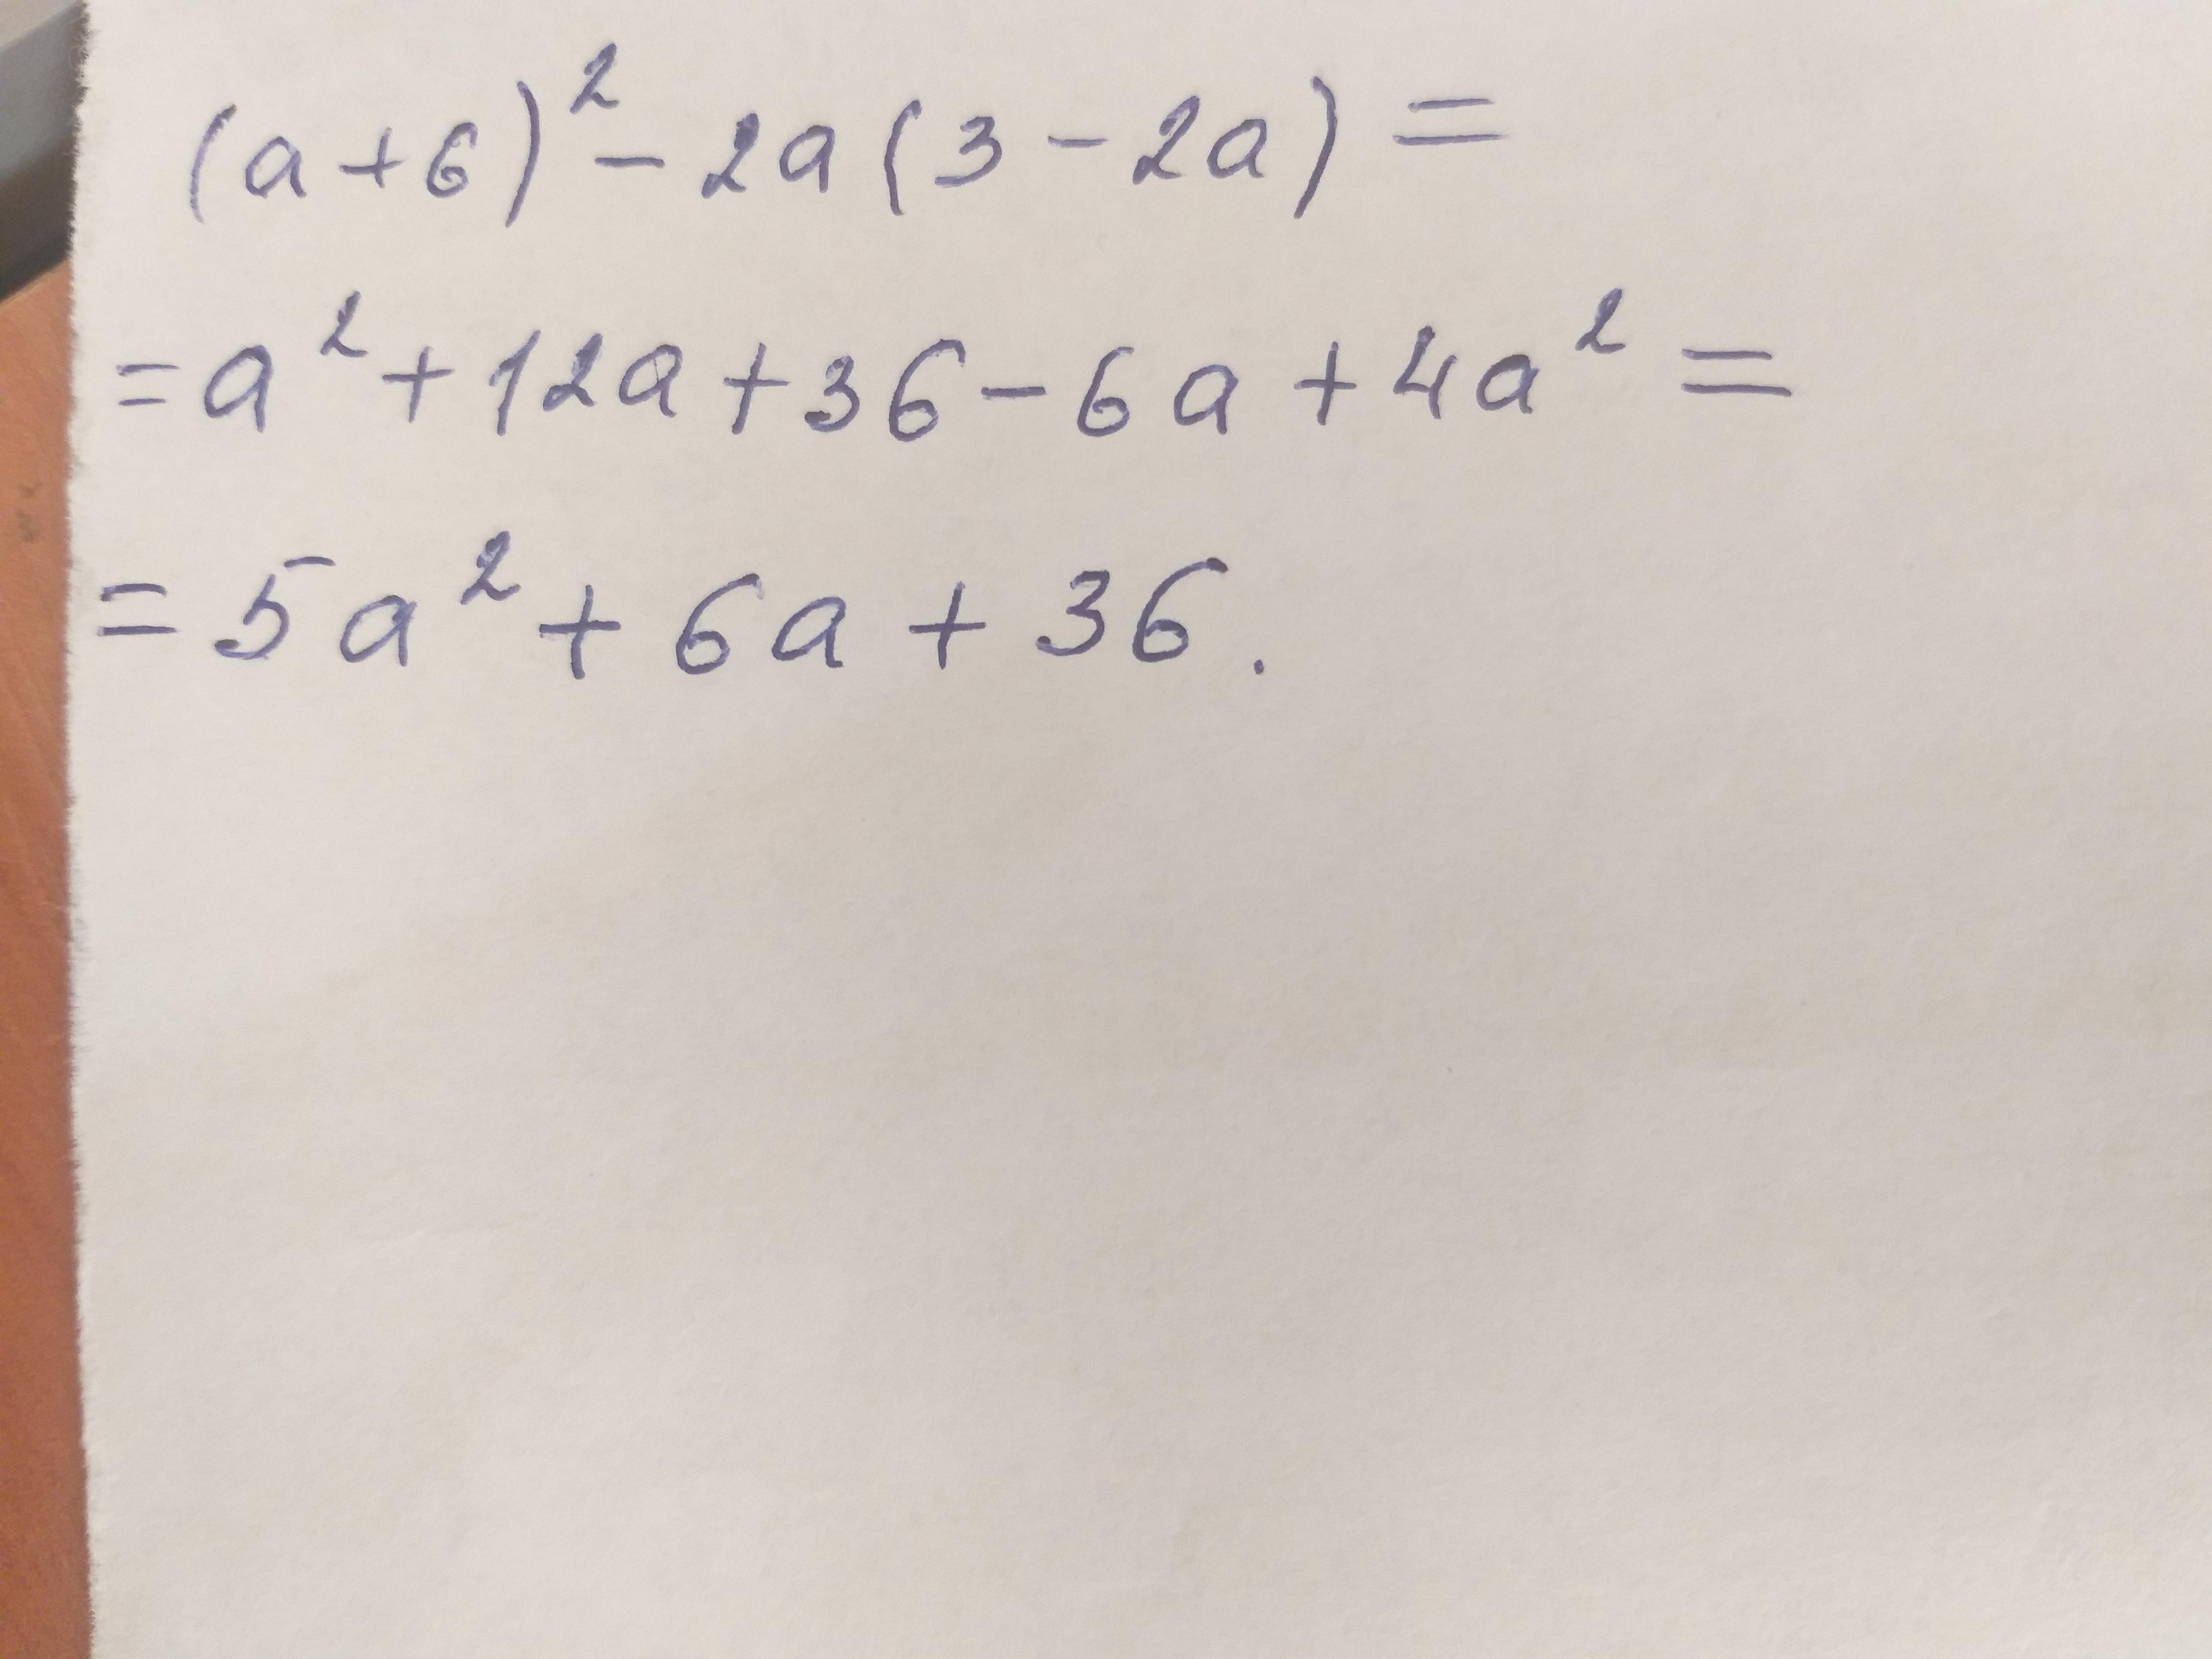 (a+6)² - 2a(3-2a) =
= a² + 12a + 36 - 6a + 4a² =
= 5a² + 6a + 36.